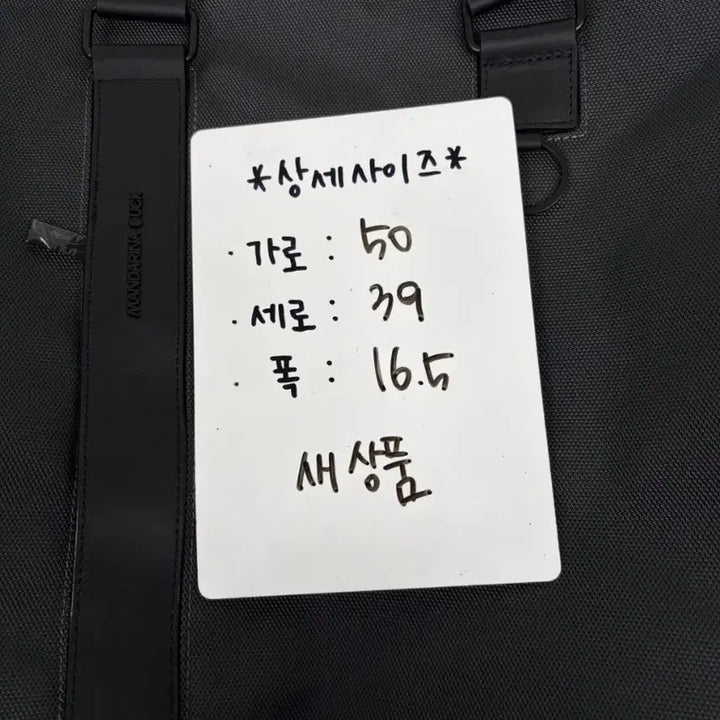 *상세사이즈*
· 가로 : 50
· 세로 : 39
· 폭 : 16.5
새상품
MANDARINA DUCK